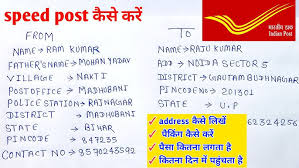 speed post कैसे करें
भारतीय डाक
Indian Post
FROM
NAME → RAM KUMAR
FATHER'S NAME → MOHAN YADAV
VILLAGE → NAKTI
POSTOFFICE → MADHUBANI
POLICE STATION → RAJNAGAR
DISTRICT → MADHUBANI
STATE → BIHAR
PINCODE → 847235
CONTACT NO → 8570243592
TO
NAME → RAJU KUMAR
ADD → NOIDA SECTOR 5
DISTRICT → GAUTAM BUDHNAGAR
PINCODE NO → 201301
STATE → U.P
62324256
✓ address कैसे लिखें
✓ पेकिंग कैसे करें
✓ पैसा कितना लगता है
✓ कितना दिन में पहुंचता है